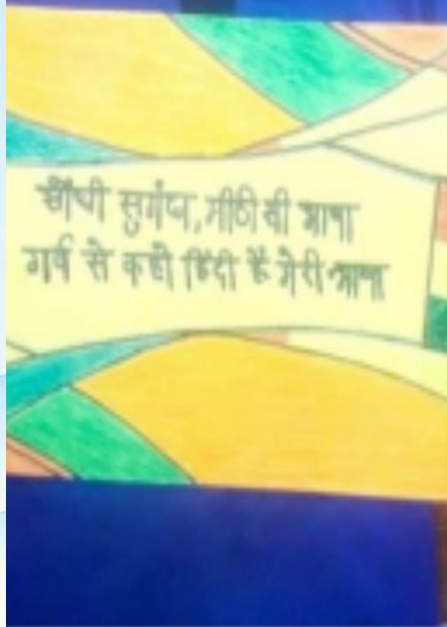 सौंधी सुगंध, मीठी सी भाषा
गर्व से कहो हिंदी है मेरी भाषा